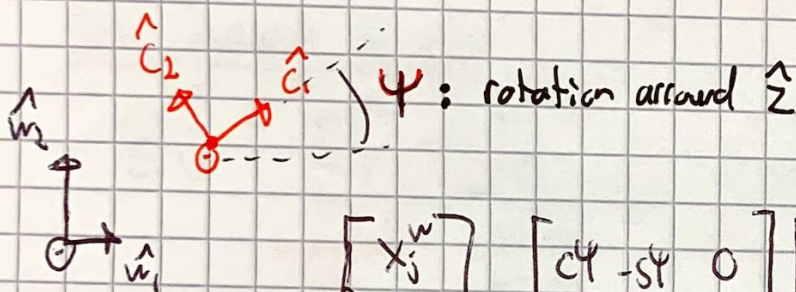 ĉ₂ ĉ₁ Ψ: rotation arround ẑ
ŵ₂
ŵ₁
[ Xⱼʷ ] [ cΨ -sΨ 0 ]